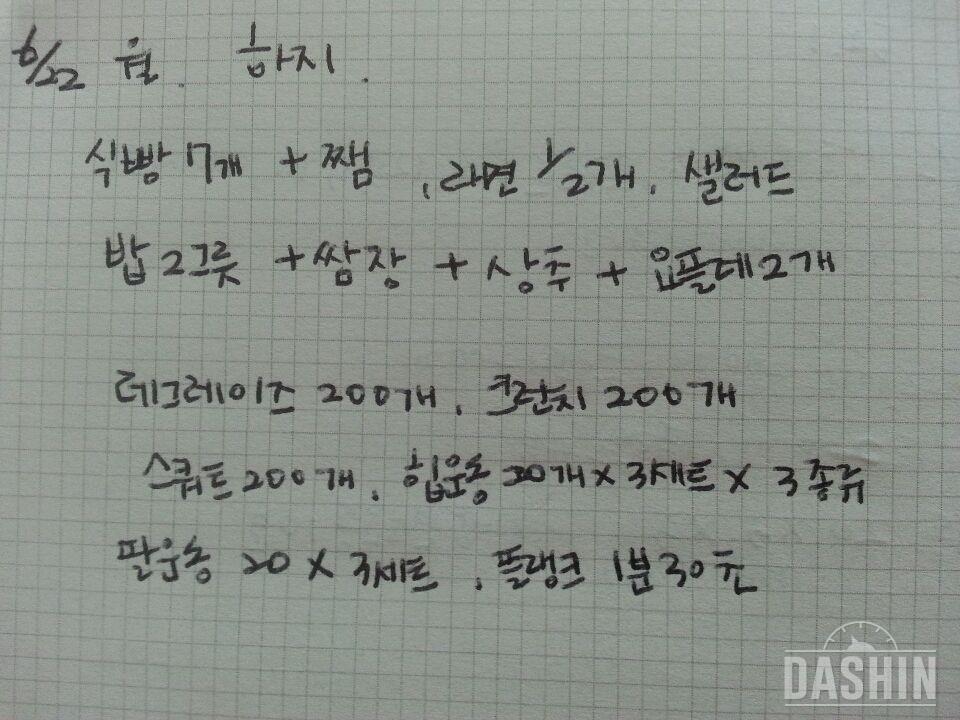 6/22 월. 하지.
식빵 7개 + 쨈, 라면 1/2개, 샐러드
밥 2그릇 + 쌈장 + 상추 + 요플레 2개
레그레이즈 200개, 크런치 200개
스쿼트 200개, 힙운동 20개 x 3세트 x 3종류
팔운동 20 x 3세트, 플랭크 1분 30초
DASHIN